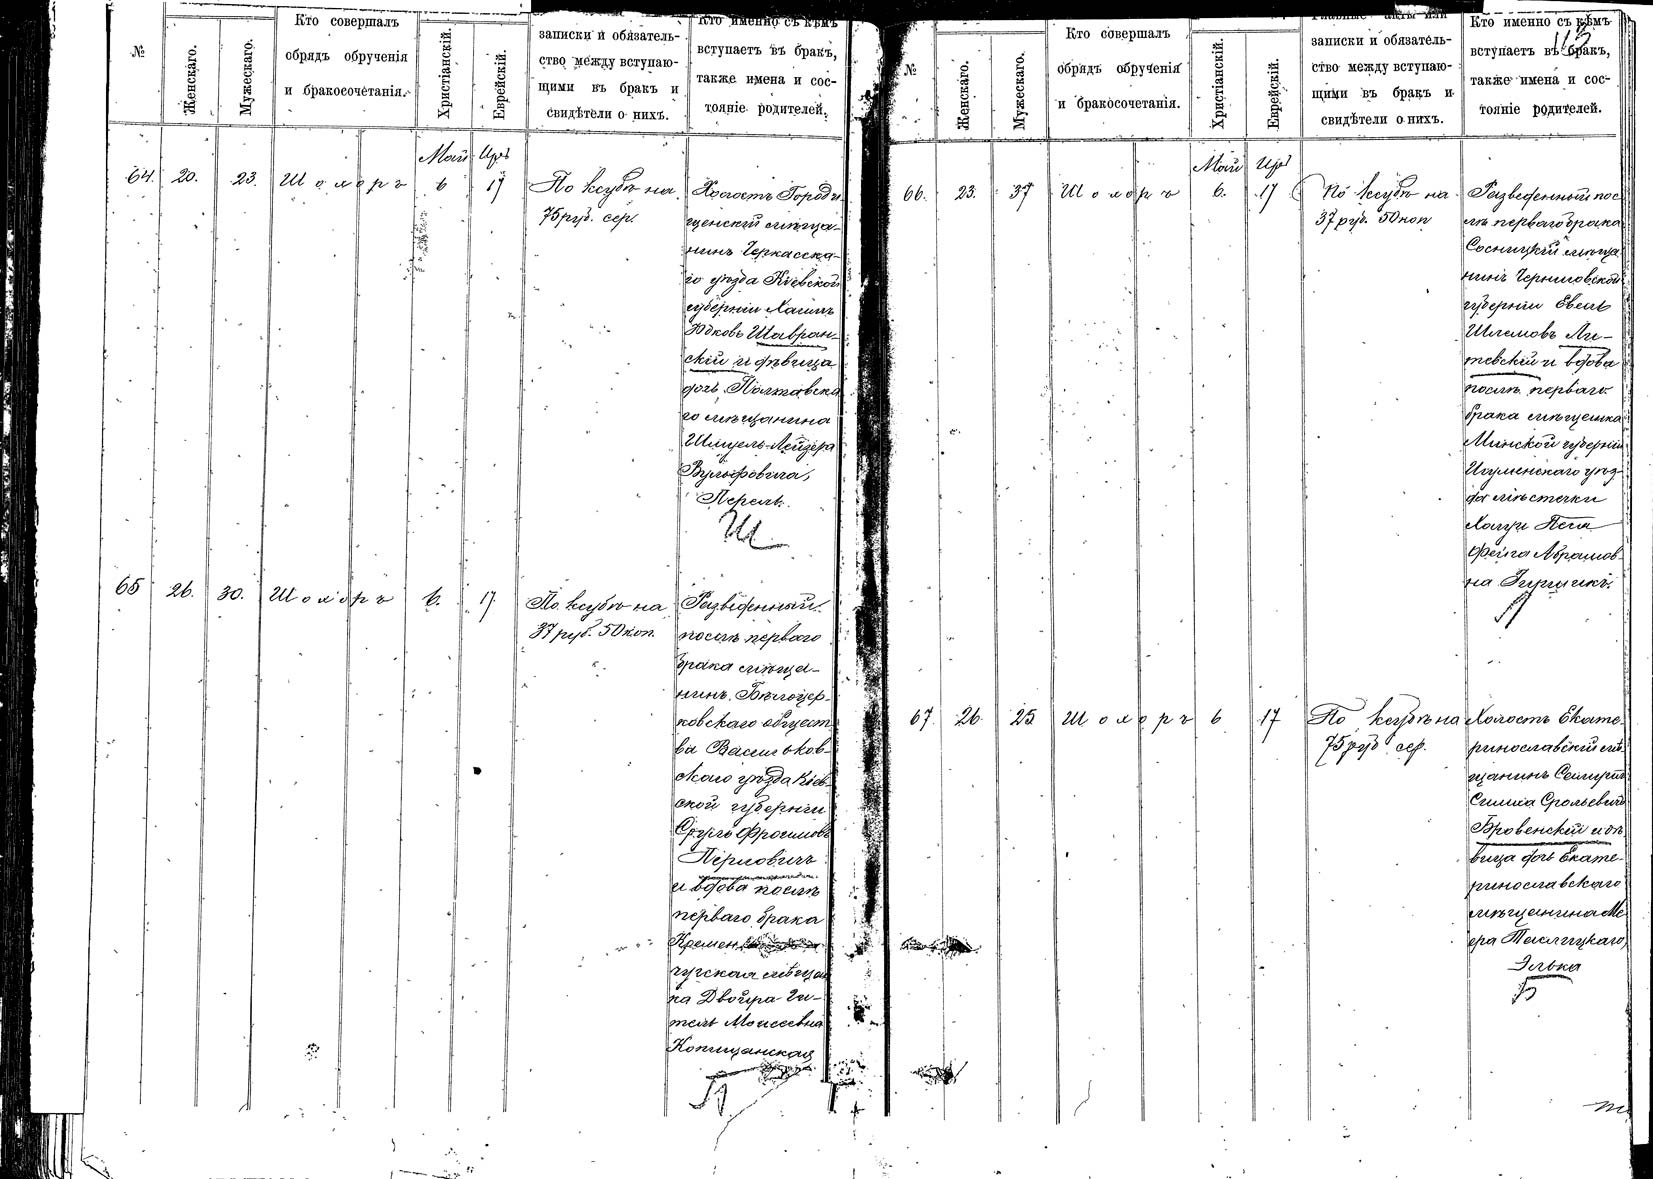 №
Женскаго.
Мужескаго.
Кто совершалъ
обрядъ обрученія
и бракосочетанія.
Христіанскій.
Еврейскій.
записки и обязатель-
ство между вступаю-
щими въ бракъ и
свидѣтели о нихъ.
Кто именно съ кѣмъ
вступаетъ въ бракъ,
также имена и сос-
тояніе родителей.
Май Иръ
64. 20. 23. Шохоръ 6 17
По ксубѣ на
75 руб. сер.
Холостъ Городи
щенскій мѣща-
нинъ Черкасска-
го уѣзда Кіевской
губерніи Хаимъ
Юдковъ Шавран-
скій и дѣвица
дочь Полтавска
го мѣщанина
Шмуель-Лейзера
Вульфовича,
Перель.
Ш
65 26. 30. Шохоръ 6. 17
По ксубѣ на
37 руб. 50 коп.
Разведенный
послѣ перваго
брака мѣща-
нинъ Бѣлоцер-
ковскаго общест
ва Васильков-
скаго уѣзда Кіев-
ской губерніи
Сруль Фроимовъ
Перловичъ
и вдова послѣ
перваго брака
Кремен
чугская мѣщан
ка Двойра Ги-
тель Моисеевна
Копищанская
П
113
№
Женскаго.
Мужескаго.
Кто совершалъ
обрядъ обрученія
и бракосочетанія.
Христіанскій.
Еврейскій.
Главные акты или
записки и обязатель-
ство между вступаю-
щими въ бракъ и
свидѣтели о нихъ.
Кто именно съ кѣмъ
вступаетъ въ бракъ,
также имена и сос-
тояніе родителей.
Май Иръ
66. 23. 37 Шохоръ 6. 17
По ксубѣ на
37 руб. 50 коп
Разведенный пос
лѣ перваго брака
Сосницкій мѣща
нинъ Черниговской
губерніи Евель
Шлемовъ Ли-
тевскій и вдова
послѣ перваго
брака мѣщанка
Минской губерніи
Игуменскаго уѣз-
да мѣстечки
Халуи Песя
Фейга Абрамов-
на
67 26 25 Шохоръ 6 17
По ксубѣ на
75 руб сер.
Холостъ Екате-
ринославскій мѣ
щанинъ
Симха Срольевичъ
Бровенскій и дѣ
вица дочь Екате-
ринославскаго
мѣщанина Ме
ера Таслицкаго,
Элька
Б